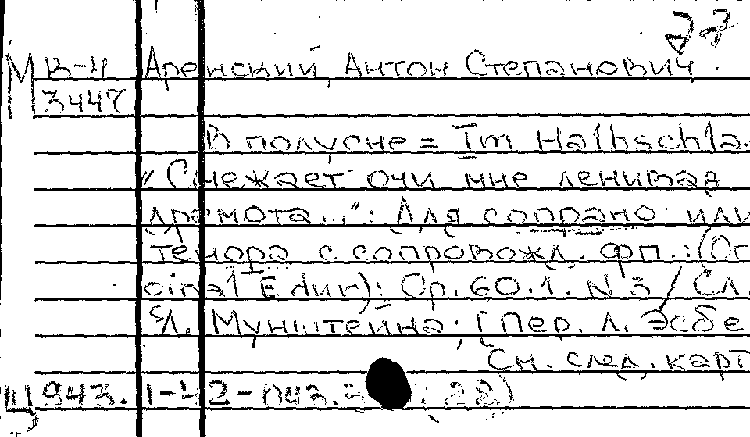 27
М В-4 Аренский, Антон Степанович.
3447
В полусне = Im Halbschla
"Смежает очи мне ленивая
дремота...": Для сопрано или
тенора с сопровожд. фп.: (Or
ginal E dur): Ор. 60. 1. N 3 / Сл.
Л. Мунштейна; [Пер. Л. Эсбе
См. след. карт
Ц 943. 1-42-П43. 22)